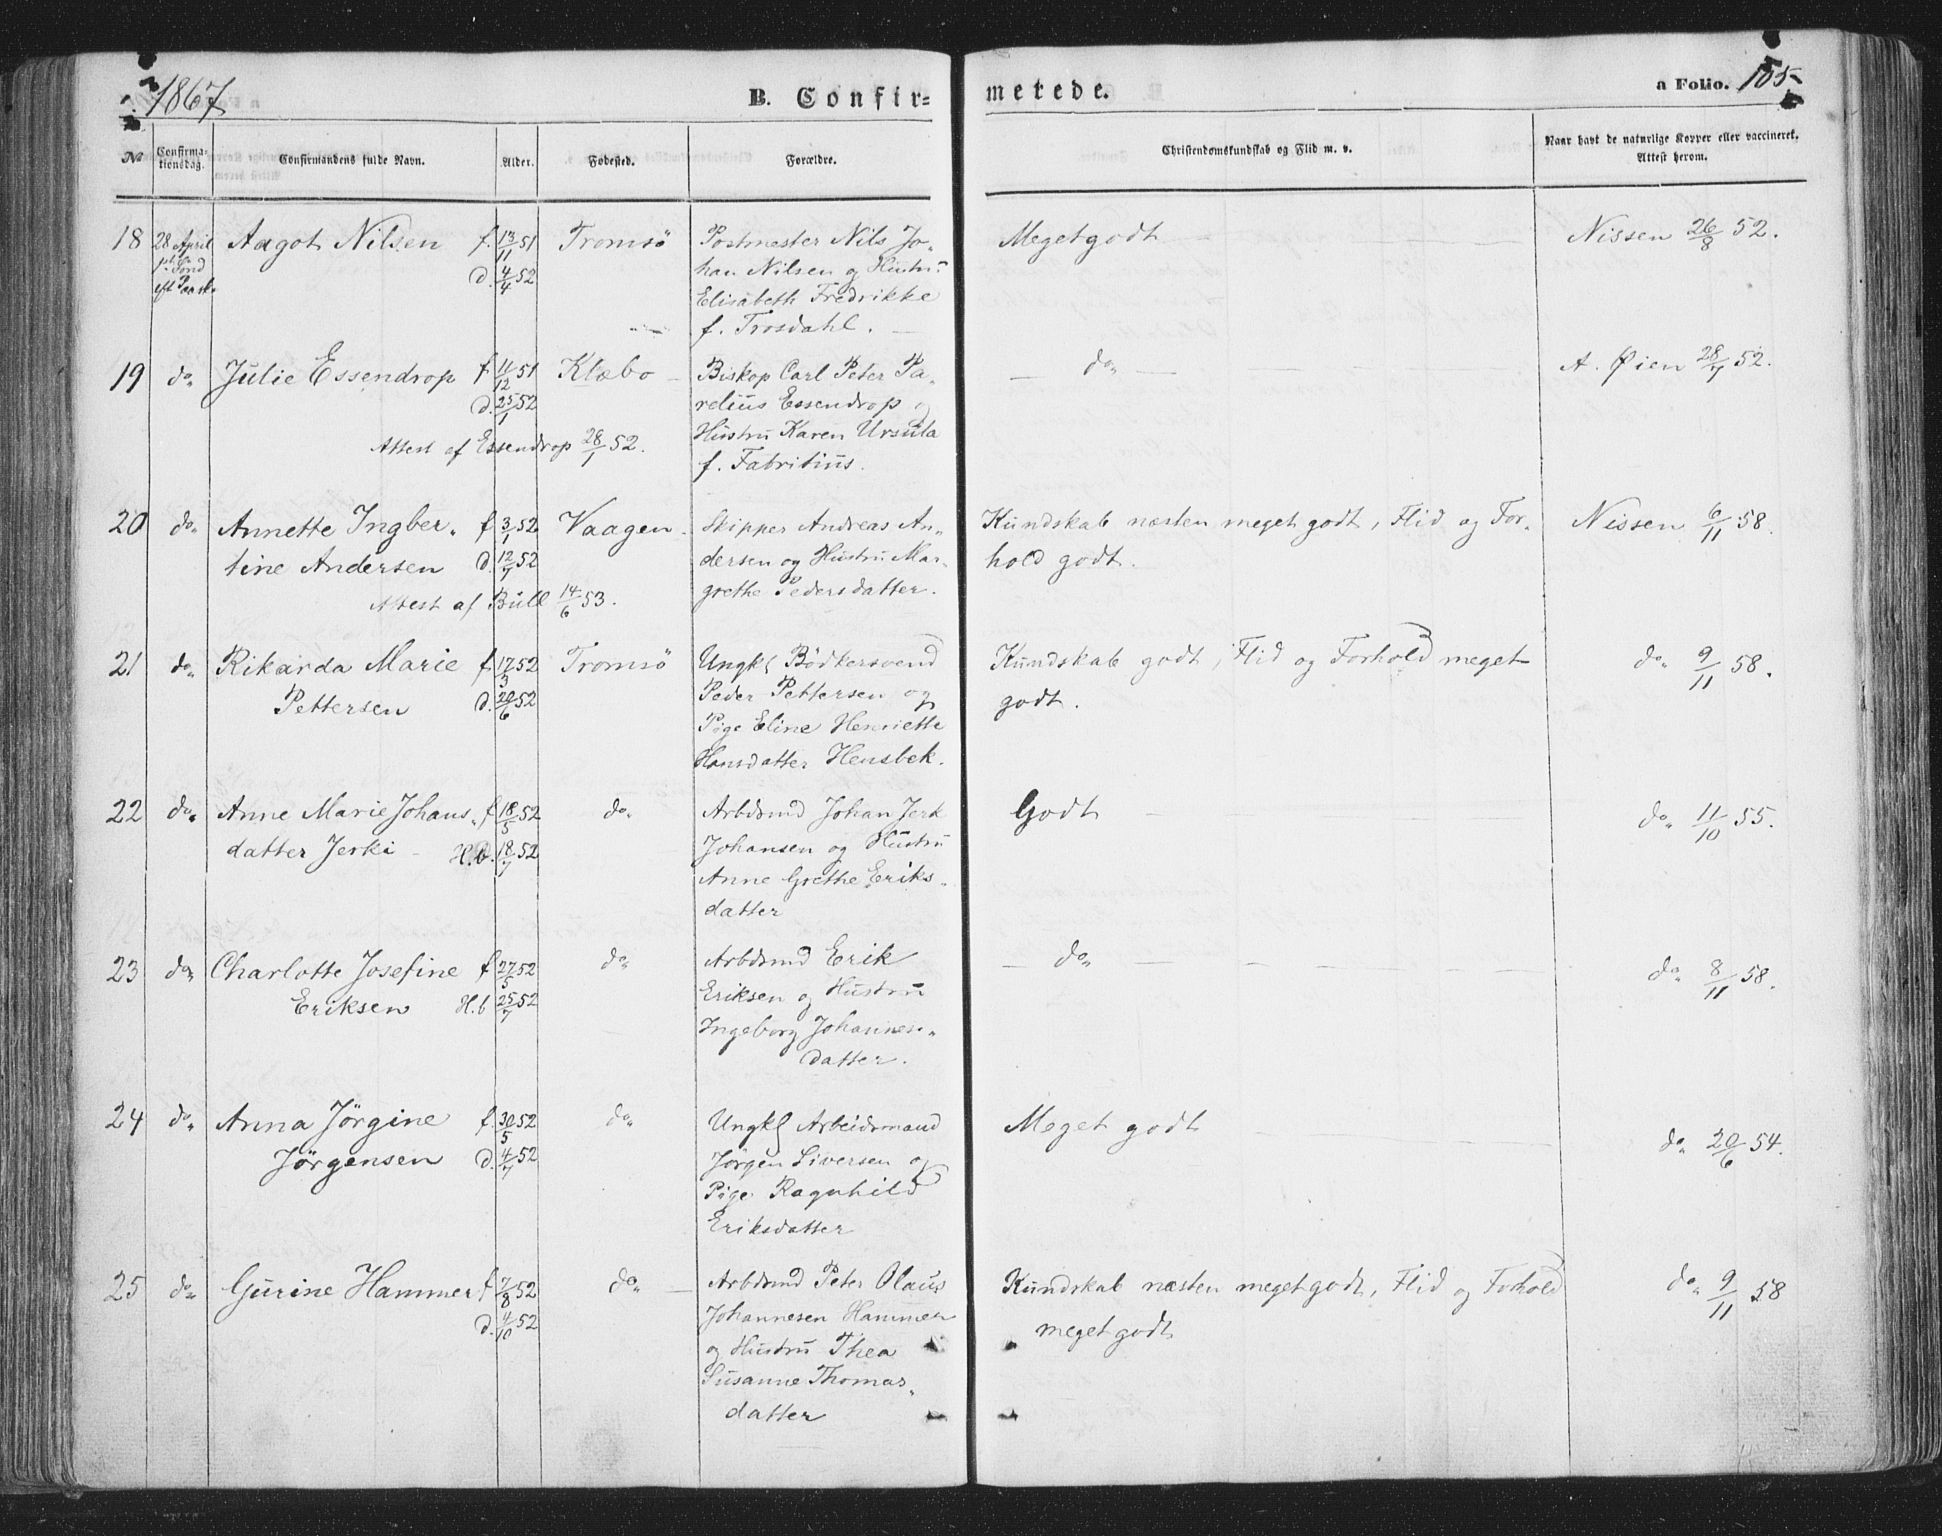 1867
B. Confir=
metede.
a Folio. 105
No
Confirma-
tionsdag.
Confirmandens fulde Navn.
Alder.
Fødested.
Forældre.
Christendomskundskab og Flid m. v.
Naar havt de naturlige Kopper eller vaccineret.
Attest herom.
18 28 April Aagot Nilsen f. 13/11 51 Tromsö Postmester Nils Jo- Megetgodt Nissen 26/8 52.
d. 4/4 52 han Nilsen og Hustru
Elisabeth Fredrikke
f. Trosdahl.
19 do Julie Essendrop f 11/12 51 Klæbo Biskop Carl Peter Pa- do A. Øien 28/7 52.
d. 25/1 52 relius Essendrop og
Attest af Essendrop 28/1 52. Hustru Karen Ursula
f. Fabritius.
20 do Annette Ingber- f 3/1 52 Vaagen Skipper Andreas An- Kundskab næsten meget godt, Flid og For- Nissen 6/11 58.
tine Andersen d. 12/7 52 dersen og Hustru Mar- hold godt.
Attest af Bull 14/6 53. grethe Pedersdatter.
21 do Rikarda Marie f 17/5 52 Tromsö Ungkl Bödkersvend Kundskab godt, Flid og Forhold meget do 9/11 58.
Pettersen d. 20/6 52 Peder Pettersen og godt.
Pige Eline Henriette
Hansdatter Hensbek.
22 do Anne Marie Johans- f 18/5 52 do Arbdsmd Johan Jerk Godt do 11/10 55.
datter Jerki H.b. 18/7 52 Johansen og Hustru
Anne Grethe Eriks-
datter
23 do Charlotte Josefine f 27/5 52 do Arbdsmd Erik do do 8/11 58.
Eriksen H.b 25/7 52 Eriksen og Hustru
Ingeborg Johannes-
datter.
24 do Anna Jørgine f. 30/5 52 do Ungkl Arbeidsmand Meget godt do 20/6 54.
Jørgensen d. 4/7 52 Jørgen Siversen og
Pige Ragnhild
Eriksdatter
25 do Gurine Hammer f 7/8 52 do Arbdsmd Peter Olaus Kundskab næsten megetgodt, Flid og Forhold do 9/11 58
d. 4/10 52 Johannesen Hammer megetgodt
og Hustru Thea
Susanne Thomas-
datter